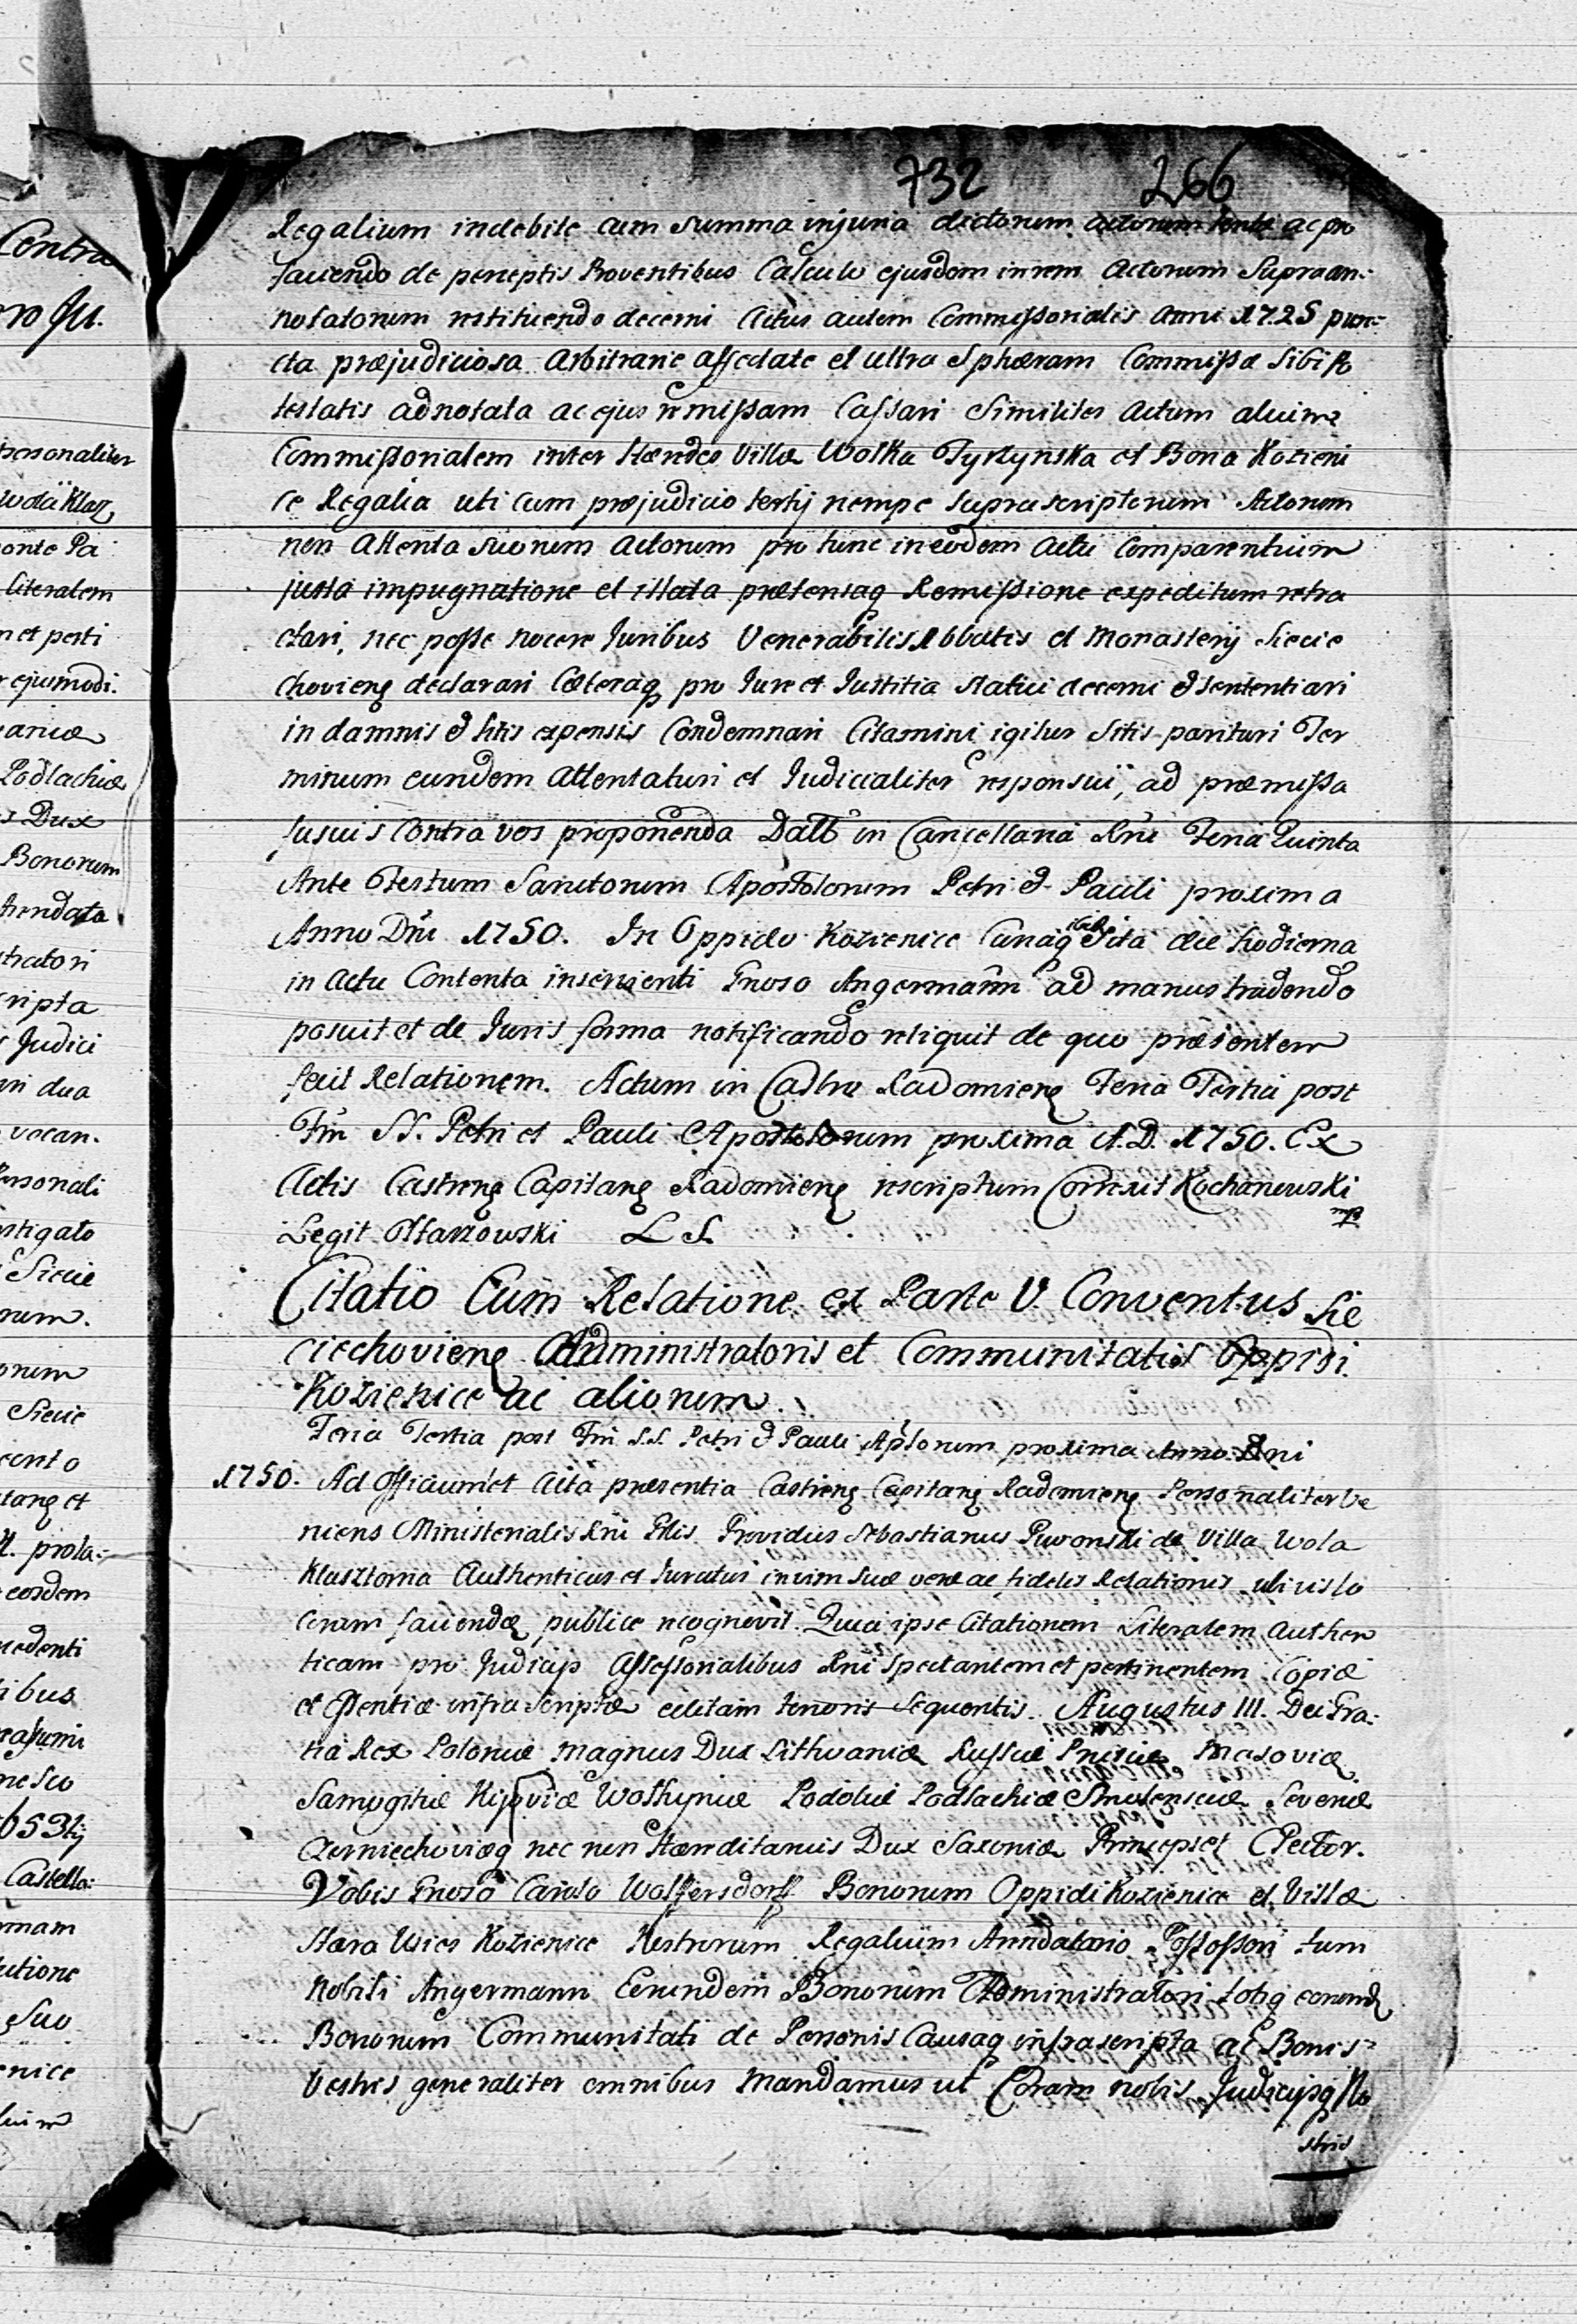 732 266
Regalium indebite cum summa injuria dictorum actorum ac pro
faciendo de perceptis Proventibus Calculo ejusdem in rem Actorum Supraan:
notatorum restituendo decerni Actus autem Commissorialis Anni 1725 pun:
cta præjudiciosa Arbitrarie affectate et ultra Sphæram Commissæ Sibi Po
testatis adnotata ac ejus remissam Cassari Similiter Actum aluim
Commissorialem inter Hæredes Villæ Wolka Tyrzynska et Bona Kozieni
ce Regalia uti cum præjudicio tertij nempe Suprascriptorum Actorum
non Attenta Suorum Actorum pro tunc in eodem Actu Comparentium
justa impugnatione et illata prætensaq Remissione expeditum retra
ctari, nec posse nocere Juribus Venerabilis Abbatis et Monasterij Siecie
chovieng declarari Cæteraq pro Jure et Justitia statui decerni & Sententiari
in damnis & litis expensis Condemnari Citamini igitur Sitis parituri Ter
minum eundem Attentaturi et Judicialiter responsuri, ad præmissa
Suis Contra vos proponenda Datt in Cancellaria Rni Feria Quinta
Ante Festum Sanctorum Apostolorum Petri & Pauli proxima
Anno Dni 1750. In Oppido Kozienice Curiaq ibide Sita die hodierna
in Actu Contenta inservienti Gnoso Angermann ad manus tradendo
posuit et de Juris forma notificando reliquit de quo præsentem
fecit Relationem. Actum in Castro Radomieng Feria Tertia post
Fm SS. Petri et Pauli Apostolorum proxima A.D. 1750. Ex
Actis Castreng Capitang Radomieng rescriptum Correxit Kochanowski
mp
Legit Ottarzowski L S.
Citatio Cum Relatione ex Parte V. Conventus Sie
ciechovieng Administratoris et Communitatis Oppidi
Kozienice ac aliorum.
Feria Tertia post Fm S.S. Petri & Pauli Aplorum proxima Anno Dni
1750. Ad Officium et Acta præsentia Castreng Capitang Radomieng Personaliter Ve
niens Ministerialis Rni Glis Providus Sebastianus Piwonski de Villa Wola
Klasztorna Authenticus et Juratus in vim Suæ veræ ac fidelis Relationis
coram faciendæ publice recognovit. Quia ipse Citationem Literalem Authen
ticam pro Judicijs Assessorialibus Rni Spectantem et pertinentem Copiæ
et Essentiæ infra Scriptæ editam tenoris Sequentis. Augustus III. Dei Gra:
tia Rex Poloniæ Magnus Dux Lithuaniæ Russiæ Prusiæ Masoviæ
Samogitiæ Kijoviæ Wolhyniæ Podoliæ Podlachiæ Smolensciæ Severiæ
Czerniechoviæq nec non Hæreditarius Dux Saxoniæ Princeps et Elector.
Vobis Gnoso Carolo Wolffersdorff Bonorum Oppidi Kozienice et Villæ
Stara Wies Kozienice Nostrorum Regalium Arendatario Possessori tum
Nobili Angermann Eorundem Bonorum Administratori totiq eorund
Bonorum Communitati de Personis Causaq infrascripta ac Bonis
Vestris generaliter omnibus Mandamus ut Coram nobis Judicijsq No
stris